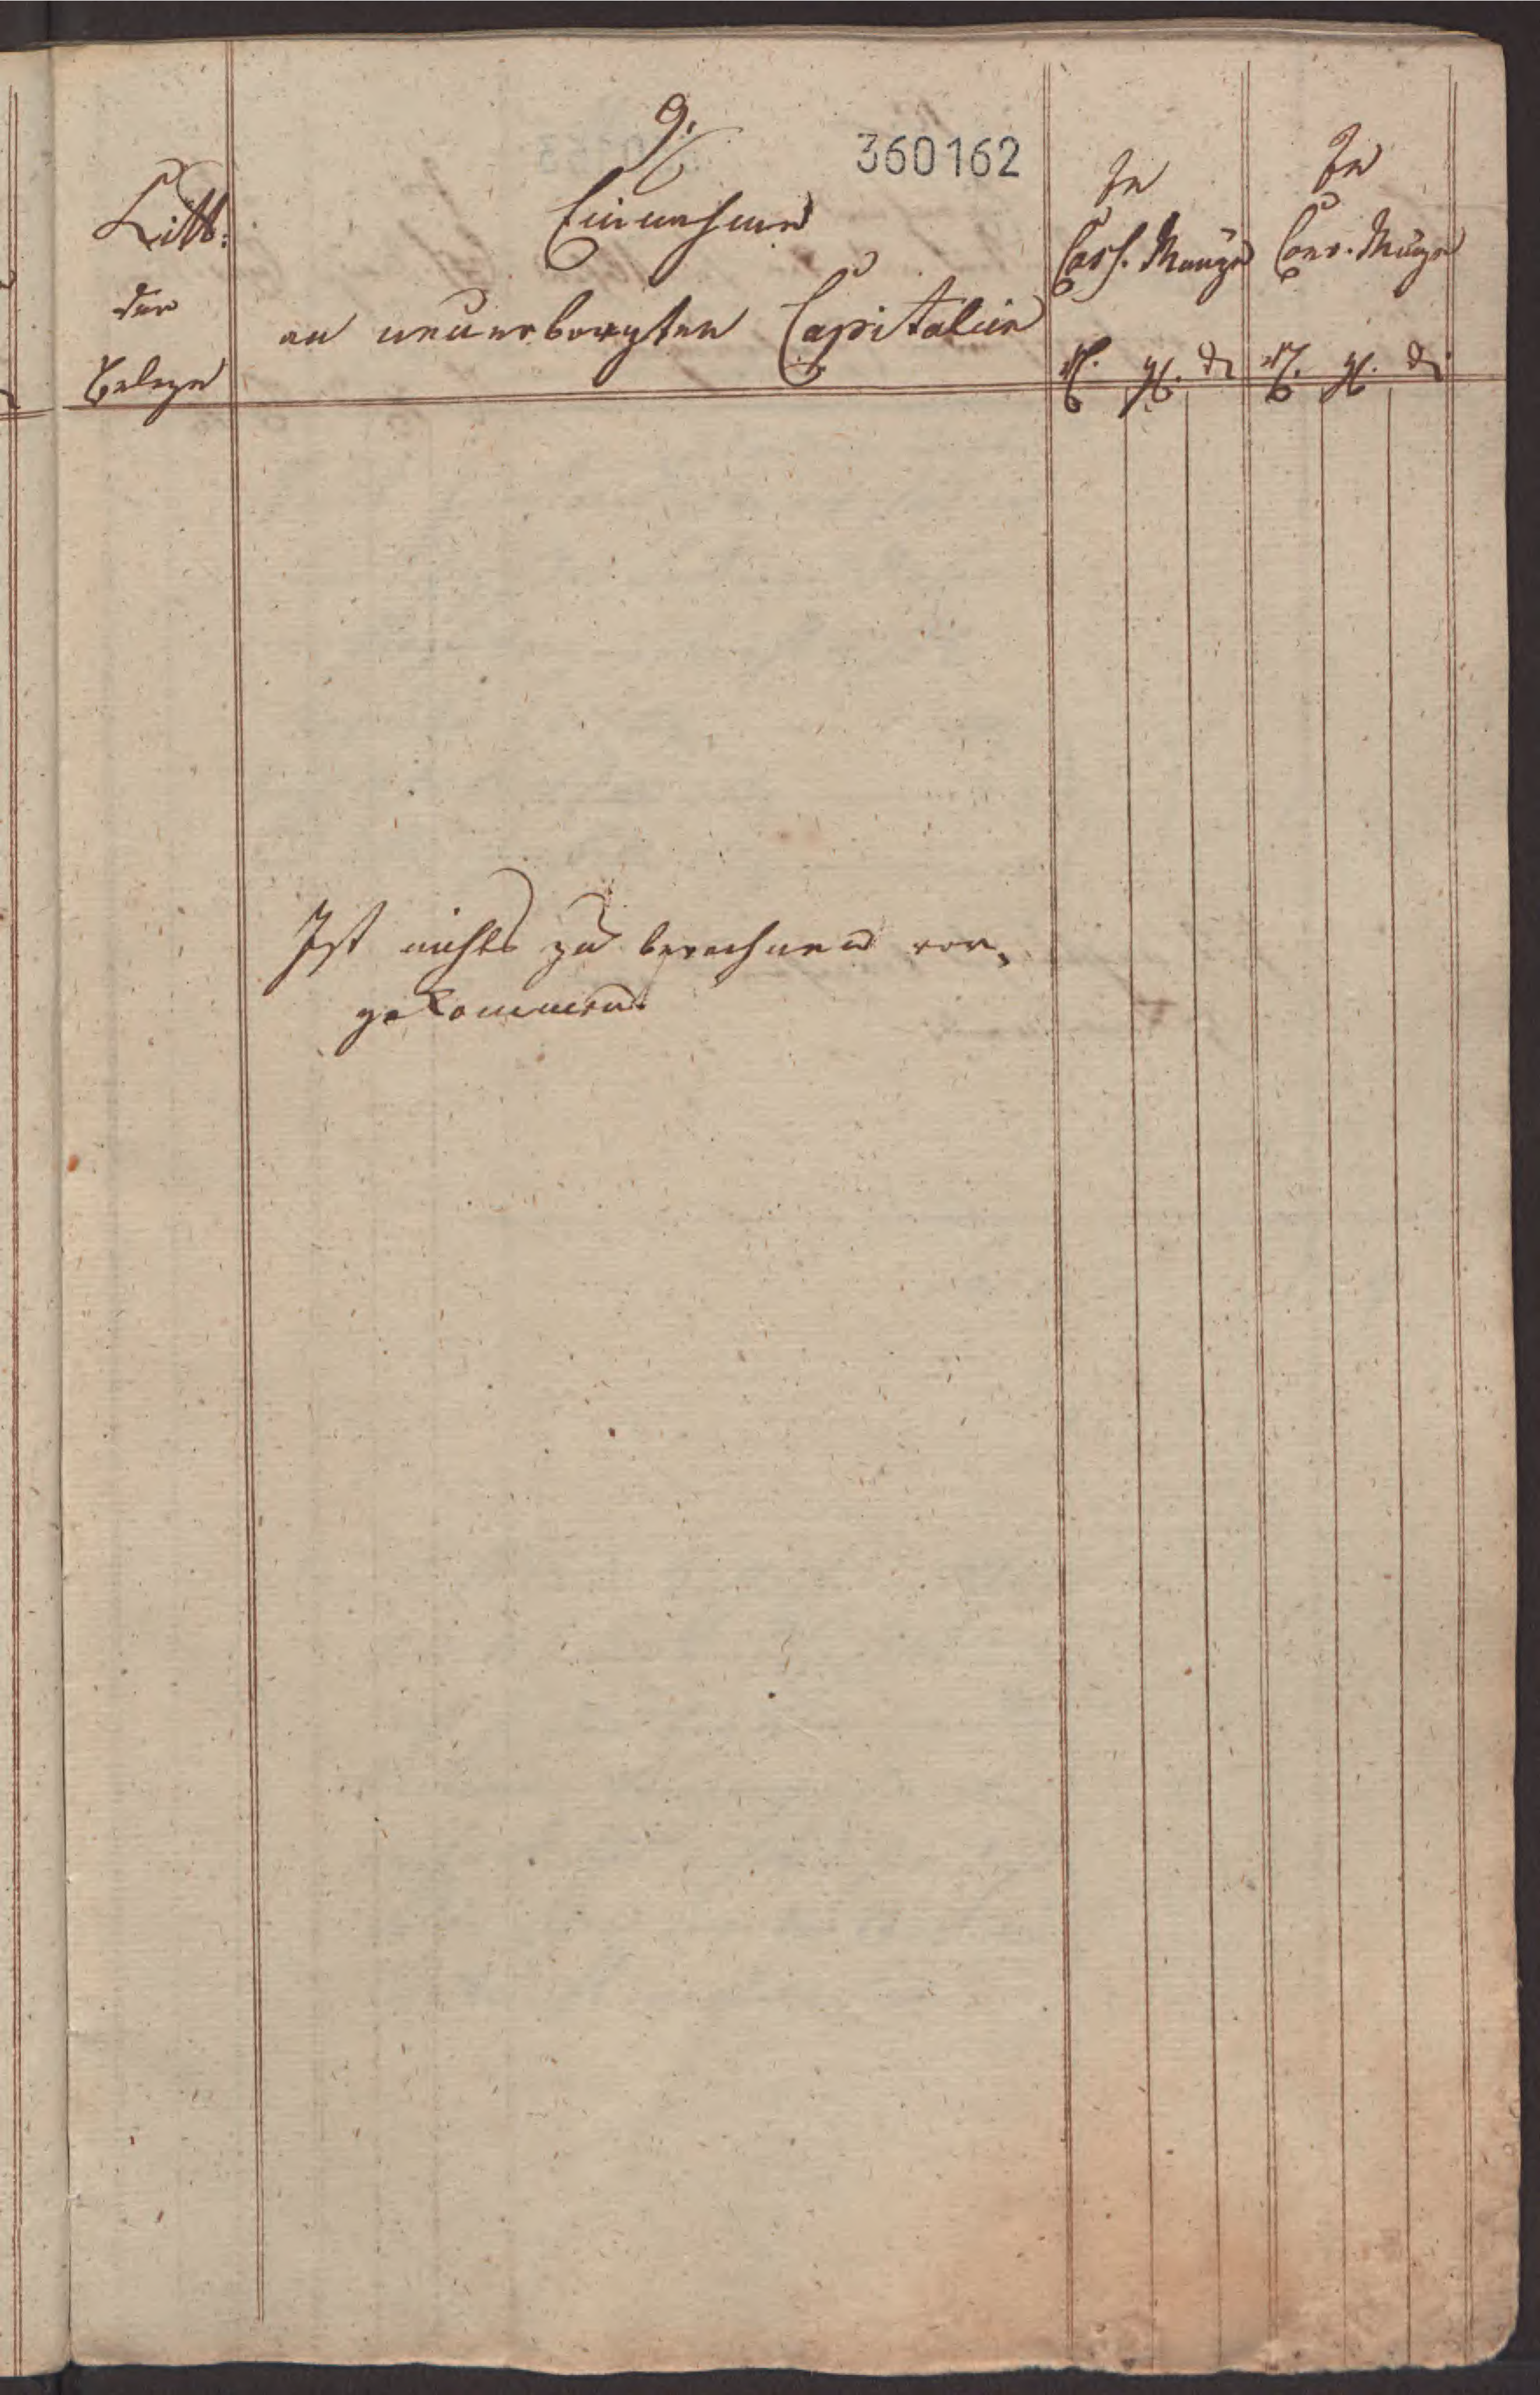 9.
360162
Litt:
der
Belege
Einnahme
an neuerborgten Capitalien
In
Cass. Münze
In
Conv. Münze
rl. gl. d rl. gl. d
Ist nichts zu berechnen vor,
gekommen.